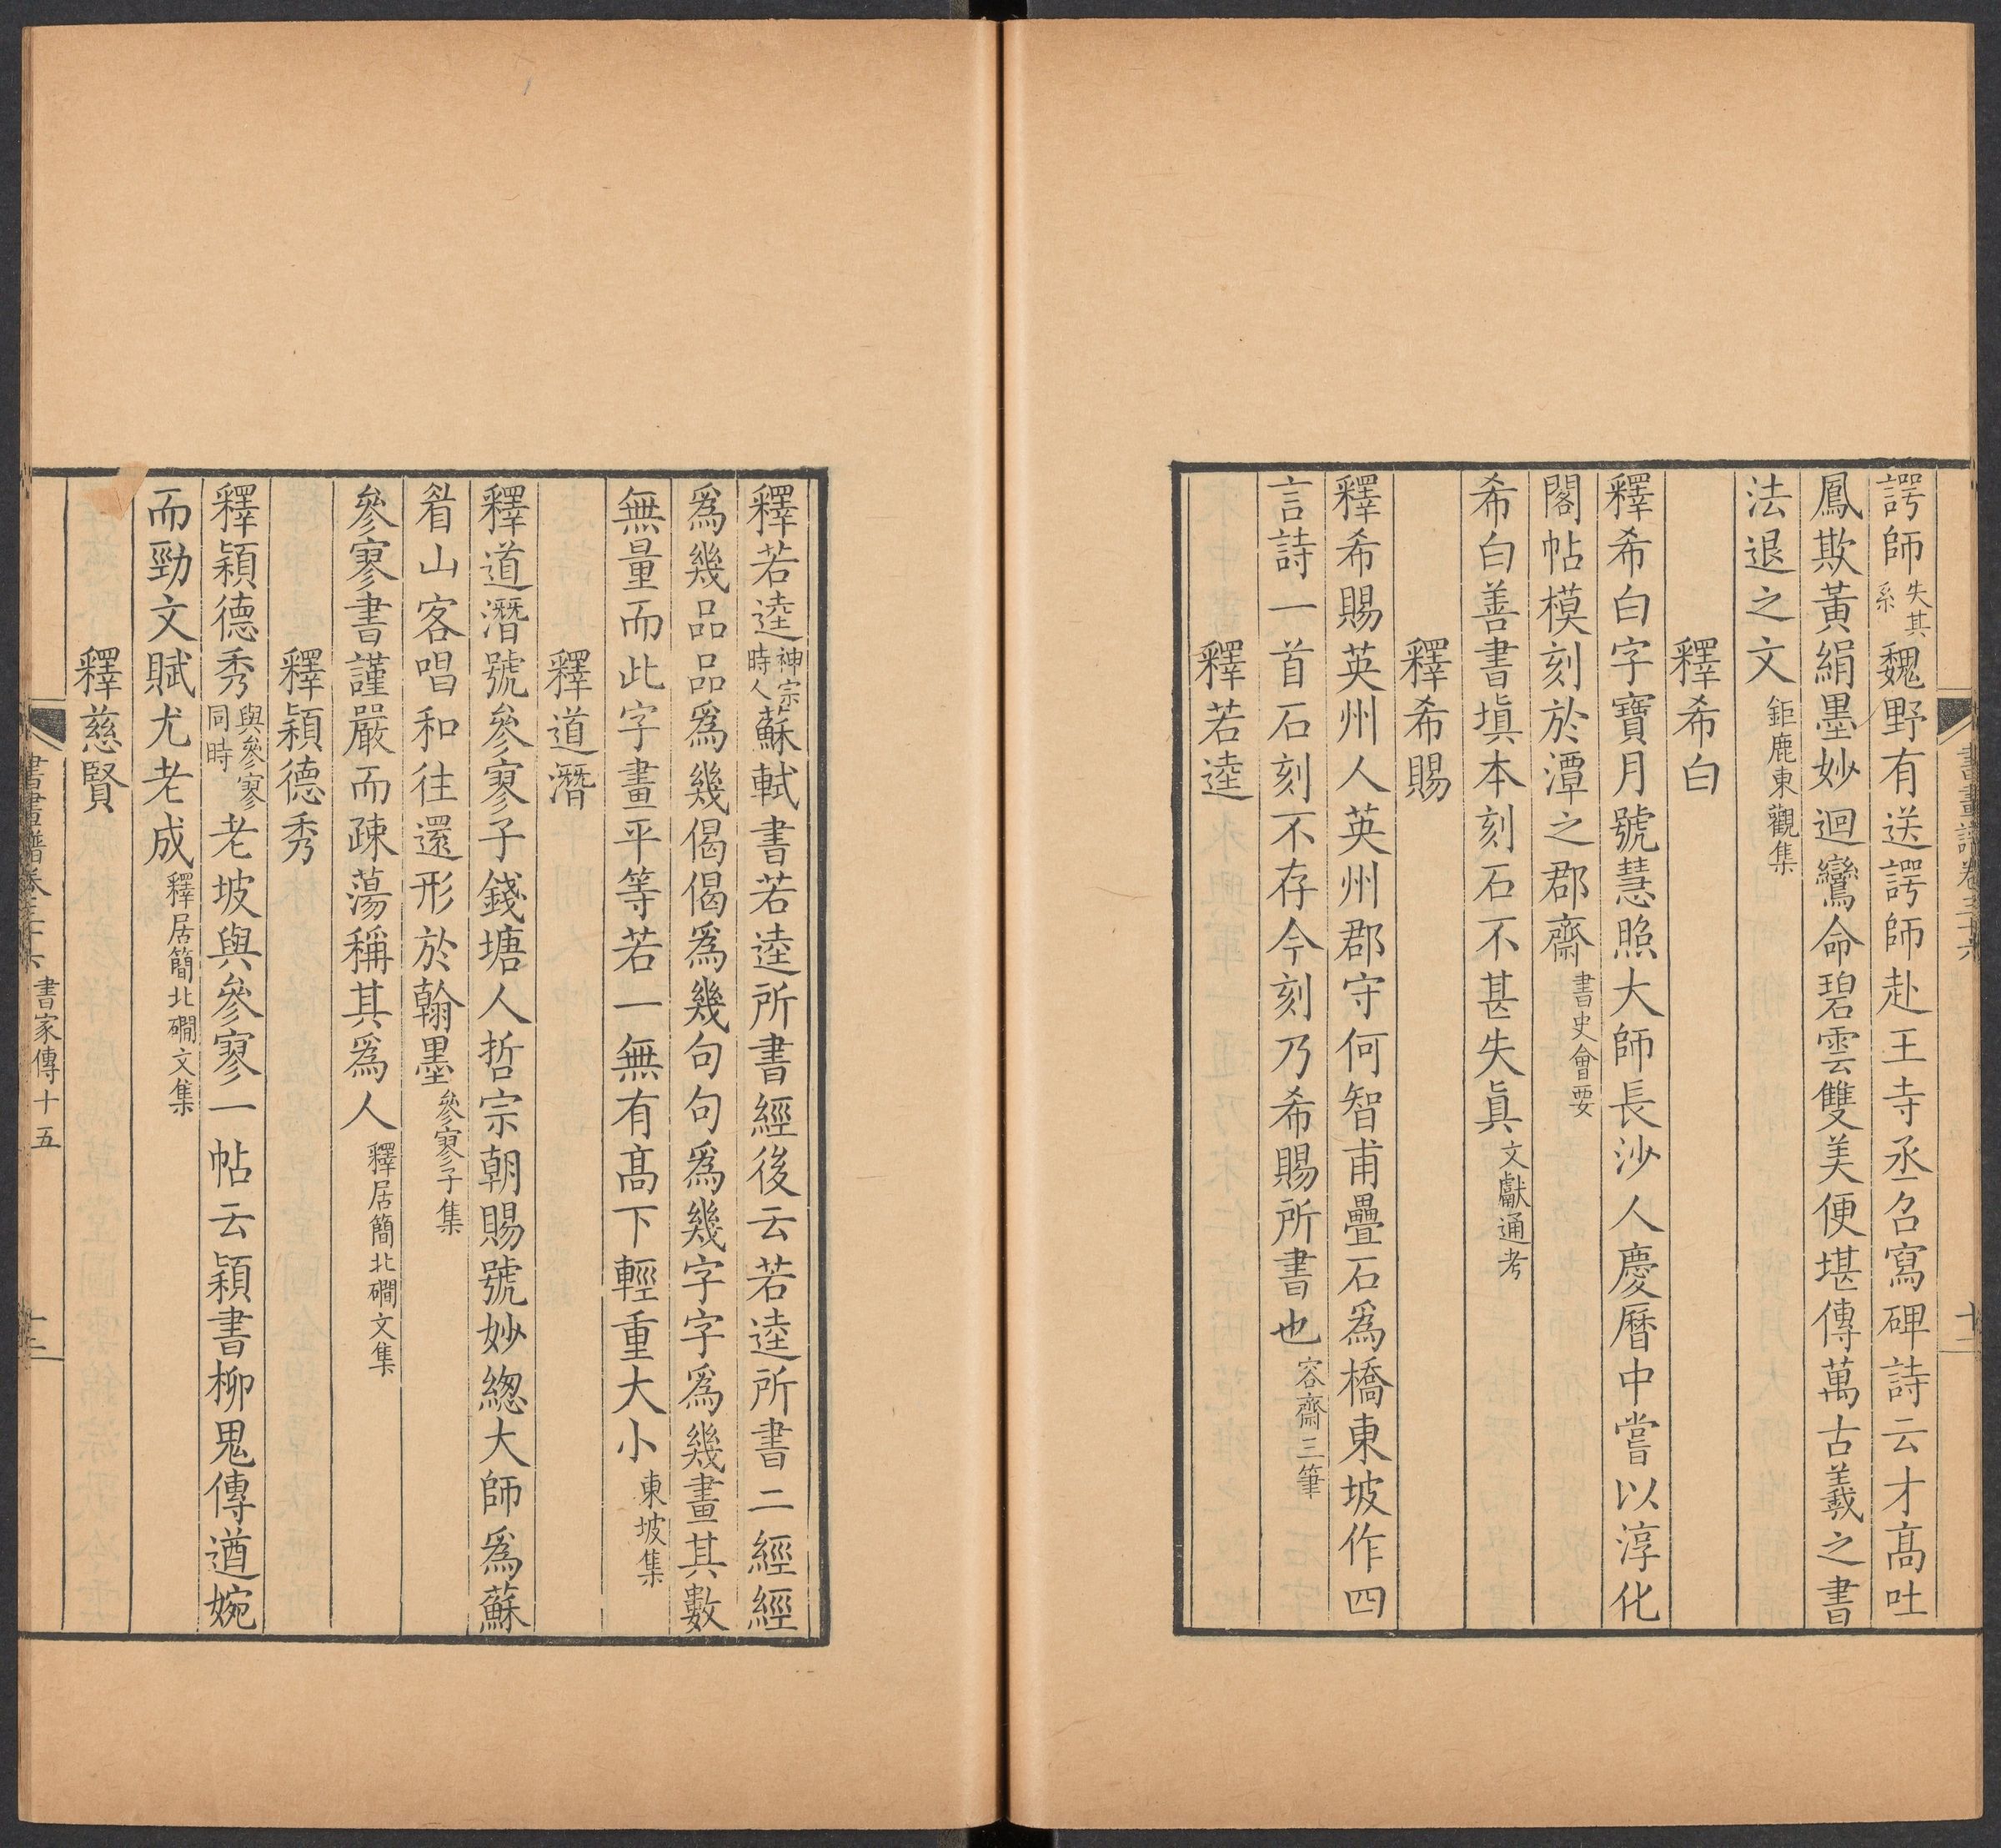 諤師失其系魏野有送諤師赴王寺丞召寫碑詩云才高吐
鳳欺黃絹墨妙迴鸞命碧雲雙美便堪傳萬古羲之書
法退之文鉅鹿東觀集
釋希白
釋希白字寶月號慧照大師長沙人慶曆中嘗以淳化
閣帖模刻於潭之郡齋書史會要
希白善書塡本刻石不甚失眞文獻通考
釋希賜
釋希賜英州人英州郡守何智甫疊石爲橋東坡作四
言詩一首石刻不存今刻乃希賜所書也容齋三筆
釋若逵
釋若逵神宗時人蘇軾書若逵所書經後云若逵所書二經經
爲幾品品爲幾偈偈爲幾句句爲幾字字爲幾畫其數
無量而此字畫平等若一無有高下輕重大小東坡集
釋道潛
釋道潛號參寥子錢塘人哲宗朝賜號妙總大師爲蘇
眉山客唱和往還形於翰墨參寥子集
參寥書謹嚴而疎蕩稱其爲人釋居簡北磵文集
釋穎德秀
釋穎德秀與參寥同時老坡與參寥一帖云穎書柳鬼傳遒婉
而勁文賦尤老成釋居簡北磵文集
釋慈賢
書畫譜卷三十六 書家傳十五